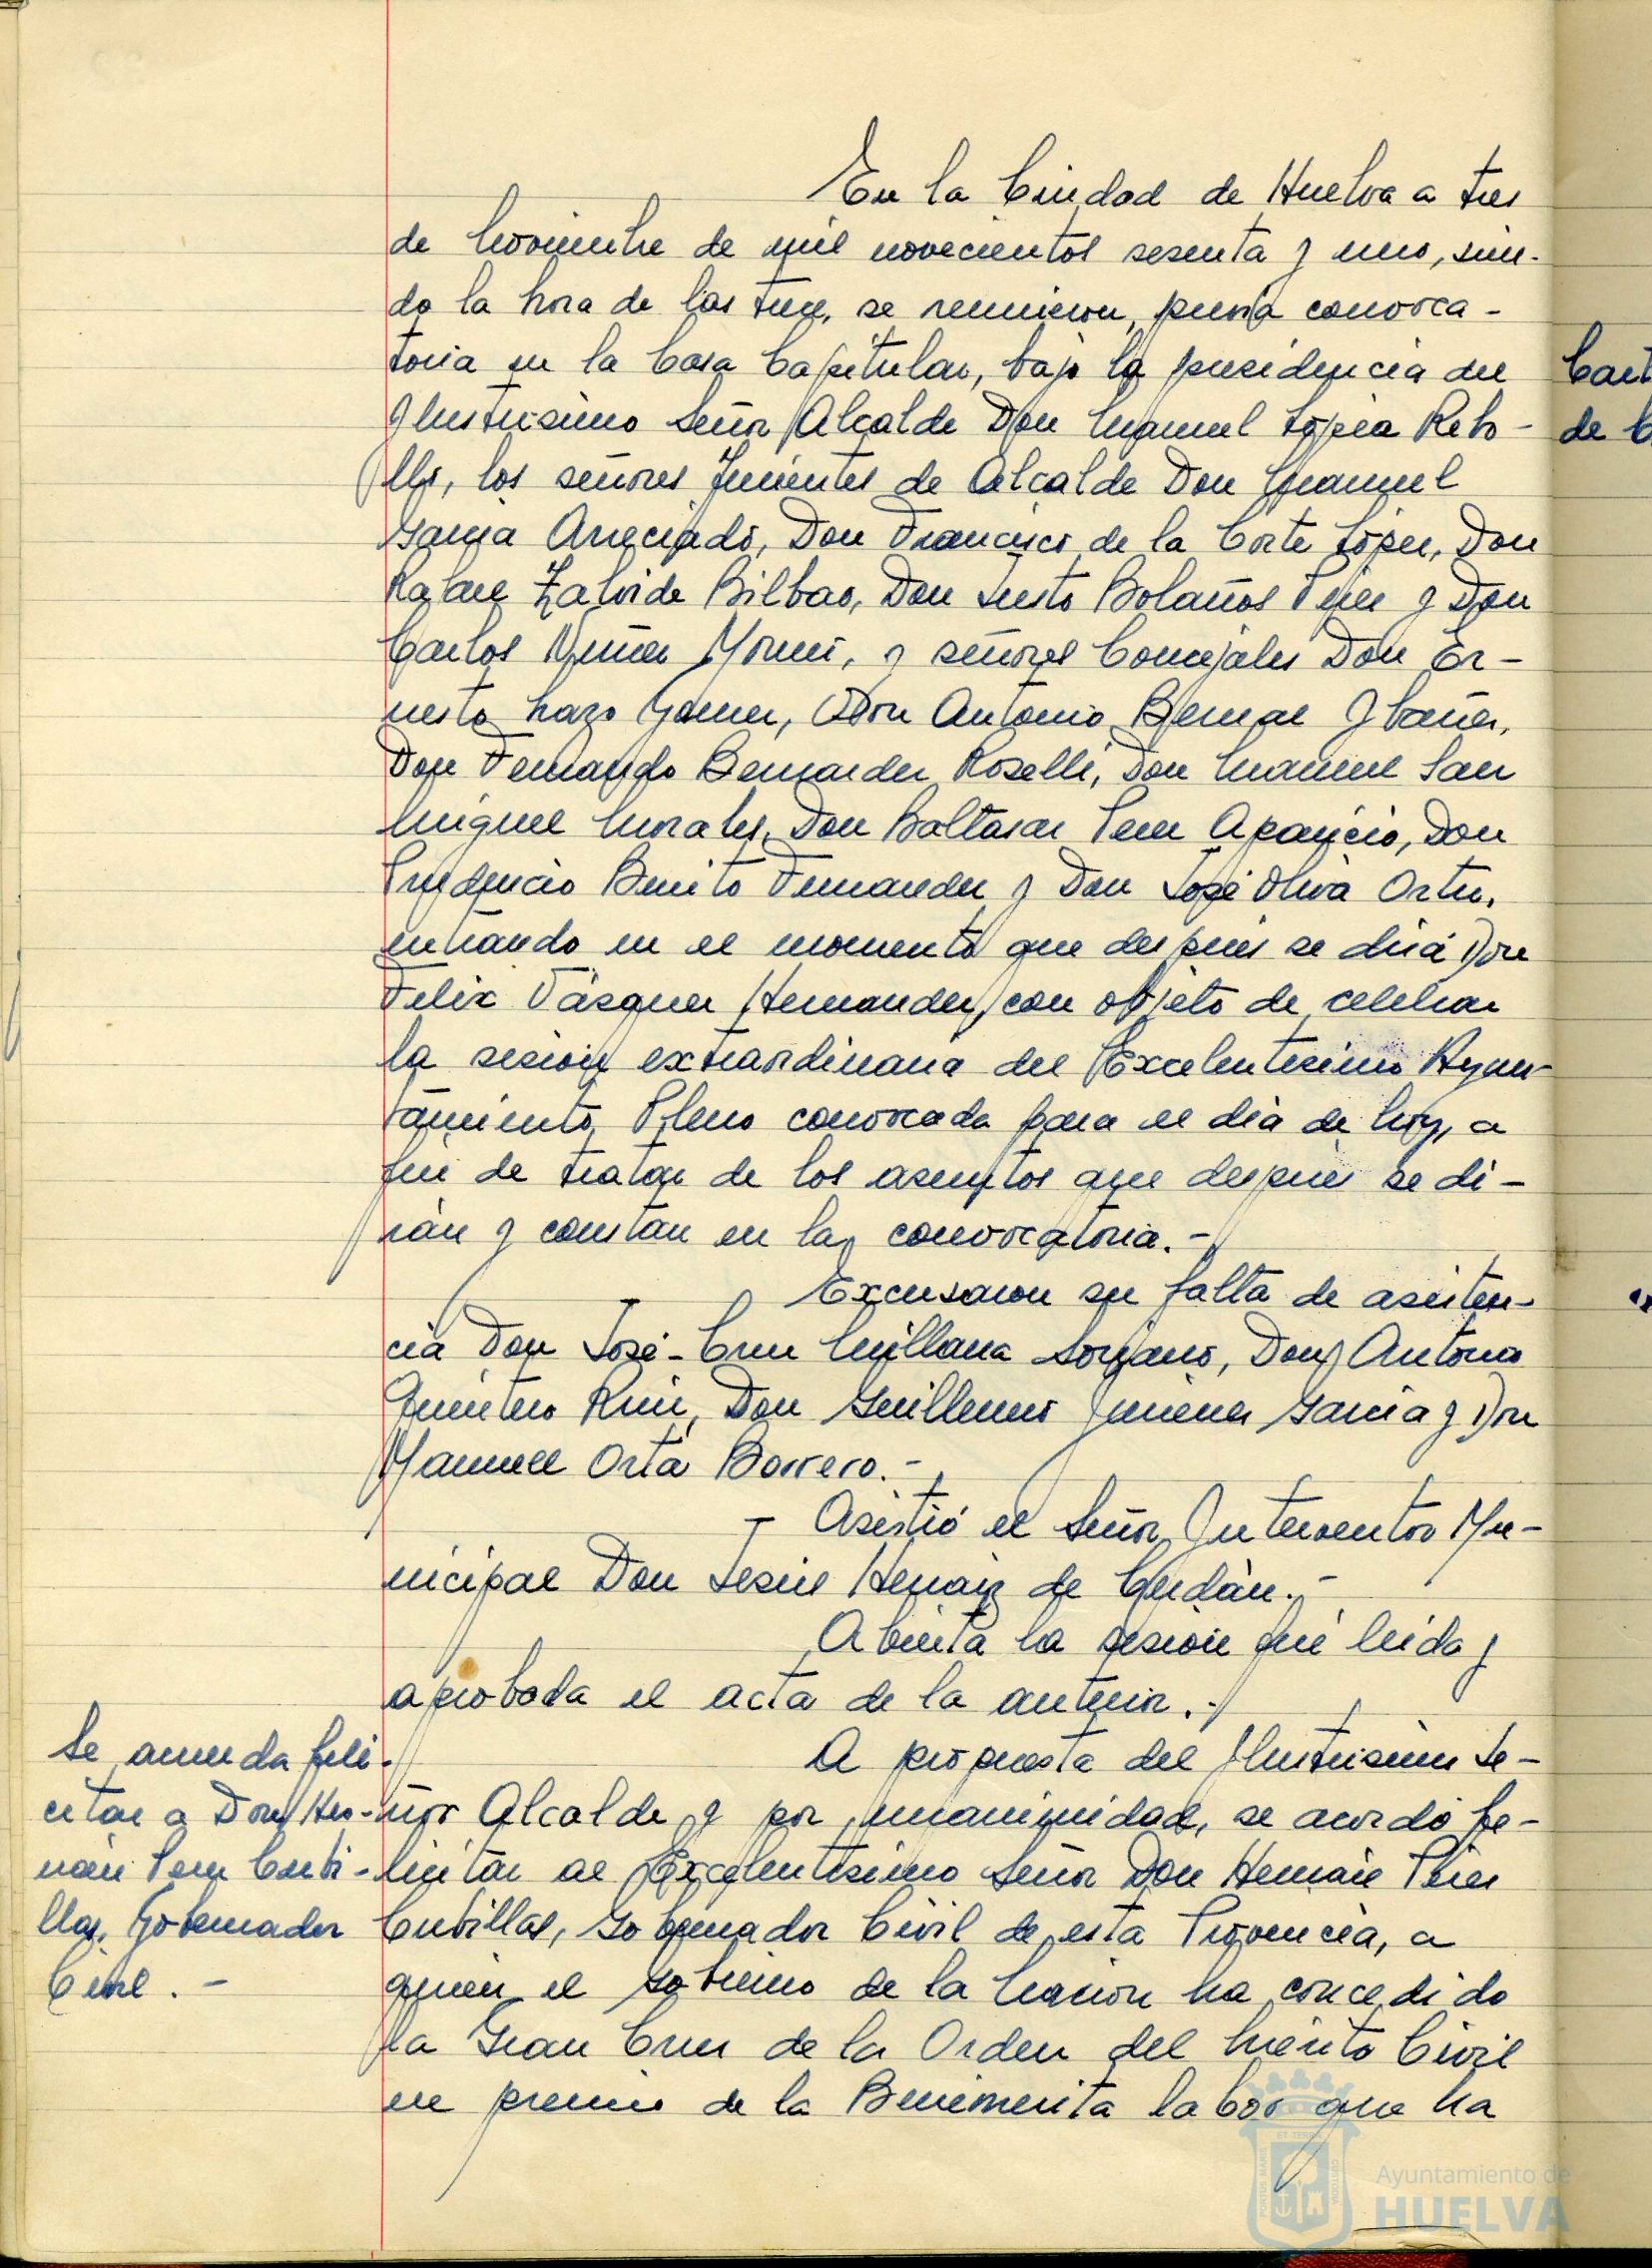 En la Ciudad de Huelva a tres
de Noviembre de mil novecientos sesenta y uno, sien-
do la hora de las trece, se reunieron, previa convoca-
toria en la Casa Capitular, bajo la presidencia del
Ilustrísimo Señor Alcalde Don Manuel López Rebo-
llo, los señores Tenientes de Alcalde Don Manuel
García Arreciado, Don Francisco de la Corte López, Don
Rafael Zalvide Bilbao, Don Justo Bolaños Pérez y Don
Carlos Núñez Moreno, y señores Concejales Don Er-
nesto Lazo Gómez, Don Antonio Bernal Ybáñez,
Don Fernando Bernardez Roselli, Don Manuel San
Miguel Morales, Don Baltasar Pérez Aparicio, Don
Prudencio Benito Fernandez y Don José Oliva Ortiz,
entrando en el momento que después se dirá Don
Felix Vázquez Hernandez, con objeto de celebrar
la sesión extraordinaria del Excelentísimo Ayun-
tamiento Pleno convocada para el día de hoy, a
fin de tratar de los asuntos que después se di-
rán y constan en la convocatoria.-
Excusaron su falta de asisten-
cia Don José-Cruz Millana Soriano, Don Antonio
Quintero Ruiz, Don Guillermo Jimenez García y Don
Manuel Orta Borrero.-
- Asistió el Señor Interventor Mu-
nicipal Don Jesús Hernaiz de
Abierta la sesión fué leida y
aprobada el acta de la anterior.-
Se acuerda feli-
citar a Don Her-
nán Pérez Cubi-
llas, Gobernador
Civil.-
A propuesta del Ilustrísimo Se-
ñor Alcalde y por unanimidad, se acordó fe-
licitar al Excelentísimo Señor Don Hernán Pérez
Cubillas, Gobernador Civil de esta Provincia, a
quien el Gobierno de la Nación ha concedido
la Gran Cruz de la Orden del Mérito Civil
en premio de la Benemérita labor que ha
Ayuntamiento de
HUELVA